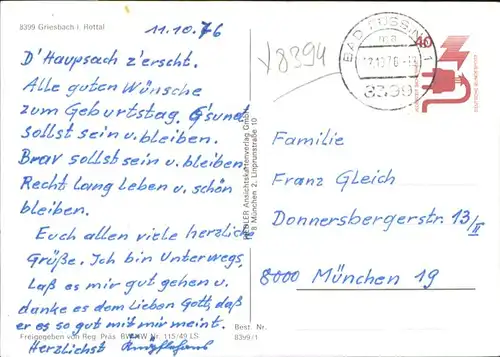 8399 Griesbach i. Rottal
11.10.76
D'Haupsach z'erscht.
Alle guten Wünsche
zum Geburtstag. G'sund
sollst sein u. bleiben.
Brav sollst sein u. bleiben
Recht lang leben u. schön
bleiben.
Euch allen viele herzliche
Grüße. Ich bin Unterwegs,
Laß es mir gut gehen u.
danke es dem Lieben Gott, daß
er es so gut mit mir meint.
Herzlichst
Freigegeben von Reg. Präs. Nr. 115/49 LS
Best. Nr.
8399/1
Ansichtskartenverlag GmbH
8 München 2, Linprunstraße 10
8394
BAD FÜSSING 1
12.10.76
8399
40
Familie
Franz Gleich
Donnersbergerstr. 13/II
8000 München 19